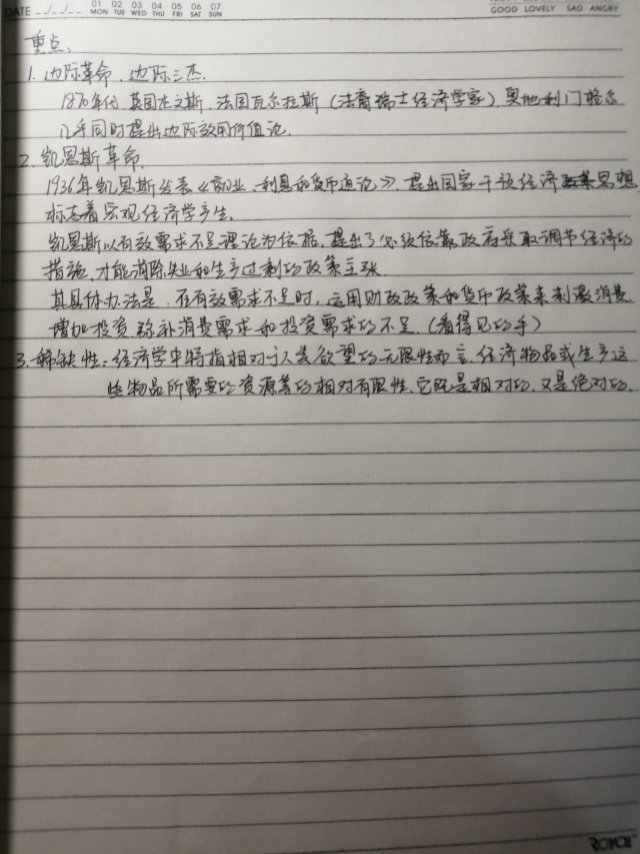 DATE
01 02 03 04 05 06 07
MON TUE WED THU FRI SAT SUN
GOOD LOVELY SAD ANGRY
重点:
1. 边际革命、边际三杰.
1870年代,英国杰文斯、法国瓦尔拉斯(法裔瑞士经济学家)、奥地利门格尔
几乎同时提出边际效用价值论.
2. 凯恩斯革命.
1936年凯恩斯发表《就业、利息和货币通论》,提出国家干预经济思想
标志着宏观经济学产生.
凯恩斯以有效需求不足理论为依据,提出了必须依靠政府采取调节经济的
措施,才能消除失业和生产过剩的政策主张.
其具体办法是:在有效需求不足时,运用财政政策和货币政策来刺激消费、
增加投资,弥补消费需求和投资需求的不足.(看得见的手)
3. 稀缺性:经济学中特指相对于人类欲望的无限性而言,经济物品或生产这
些物品所需要的资源等的相对有限性,它既是相对的,又是绝对的.
ROYCE